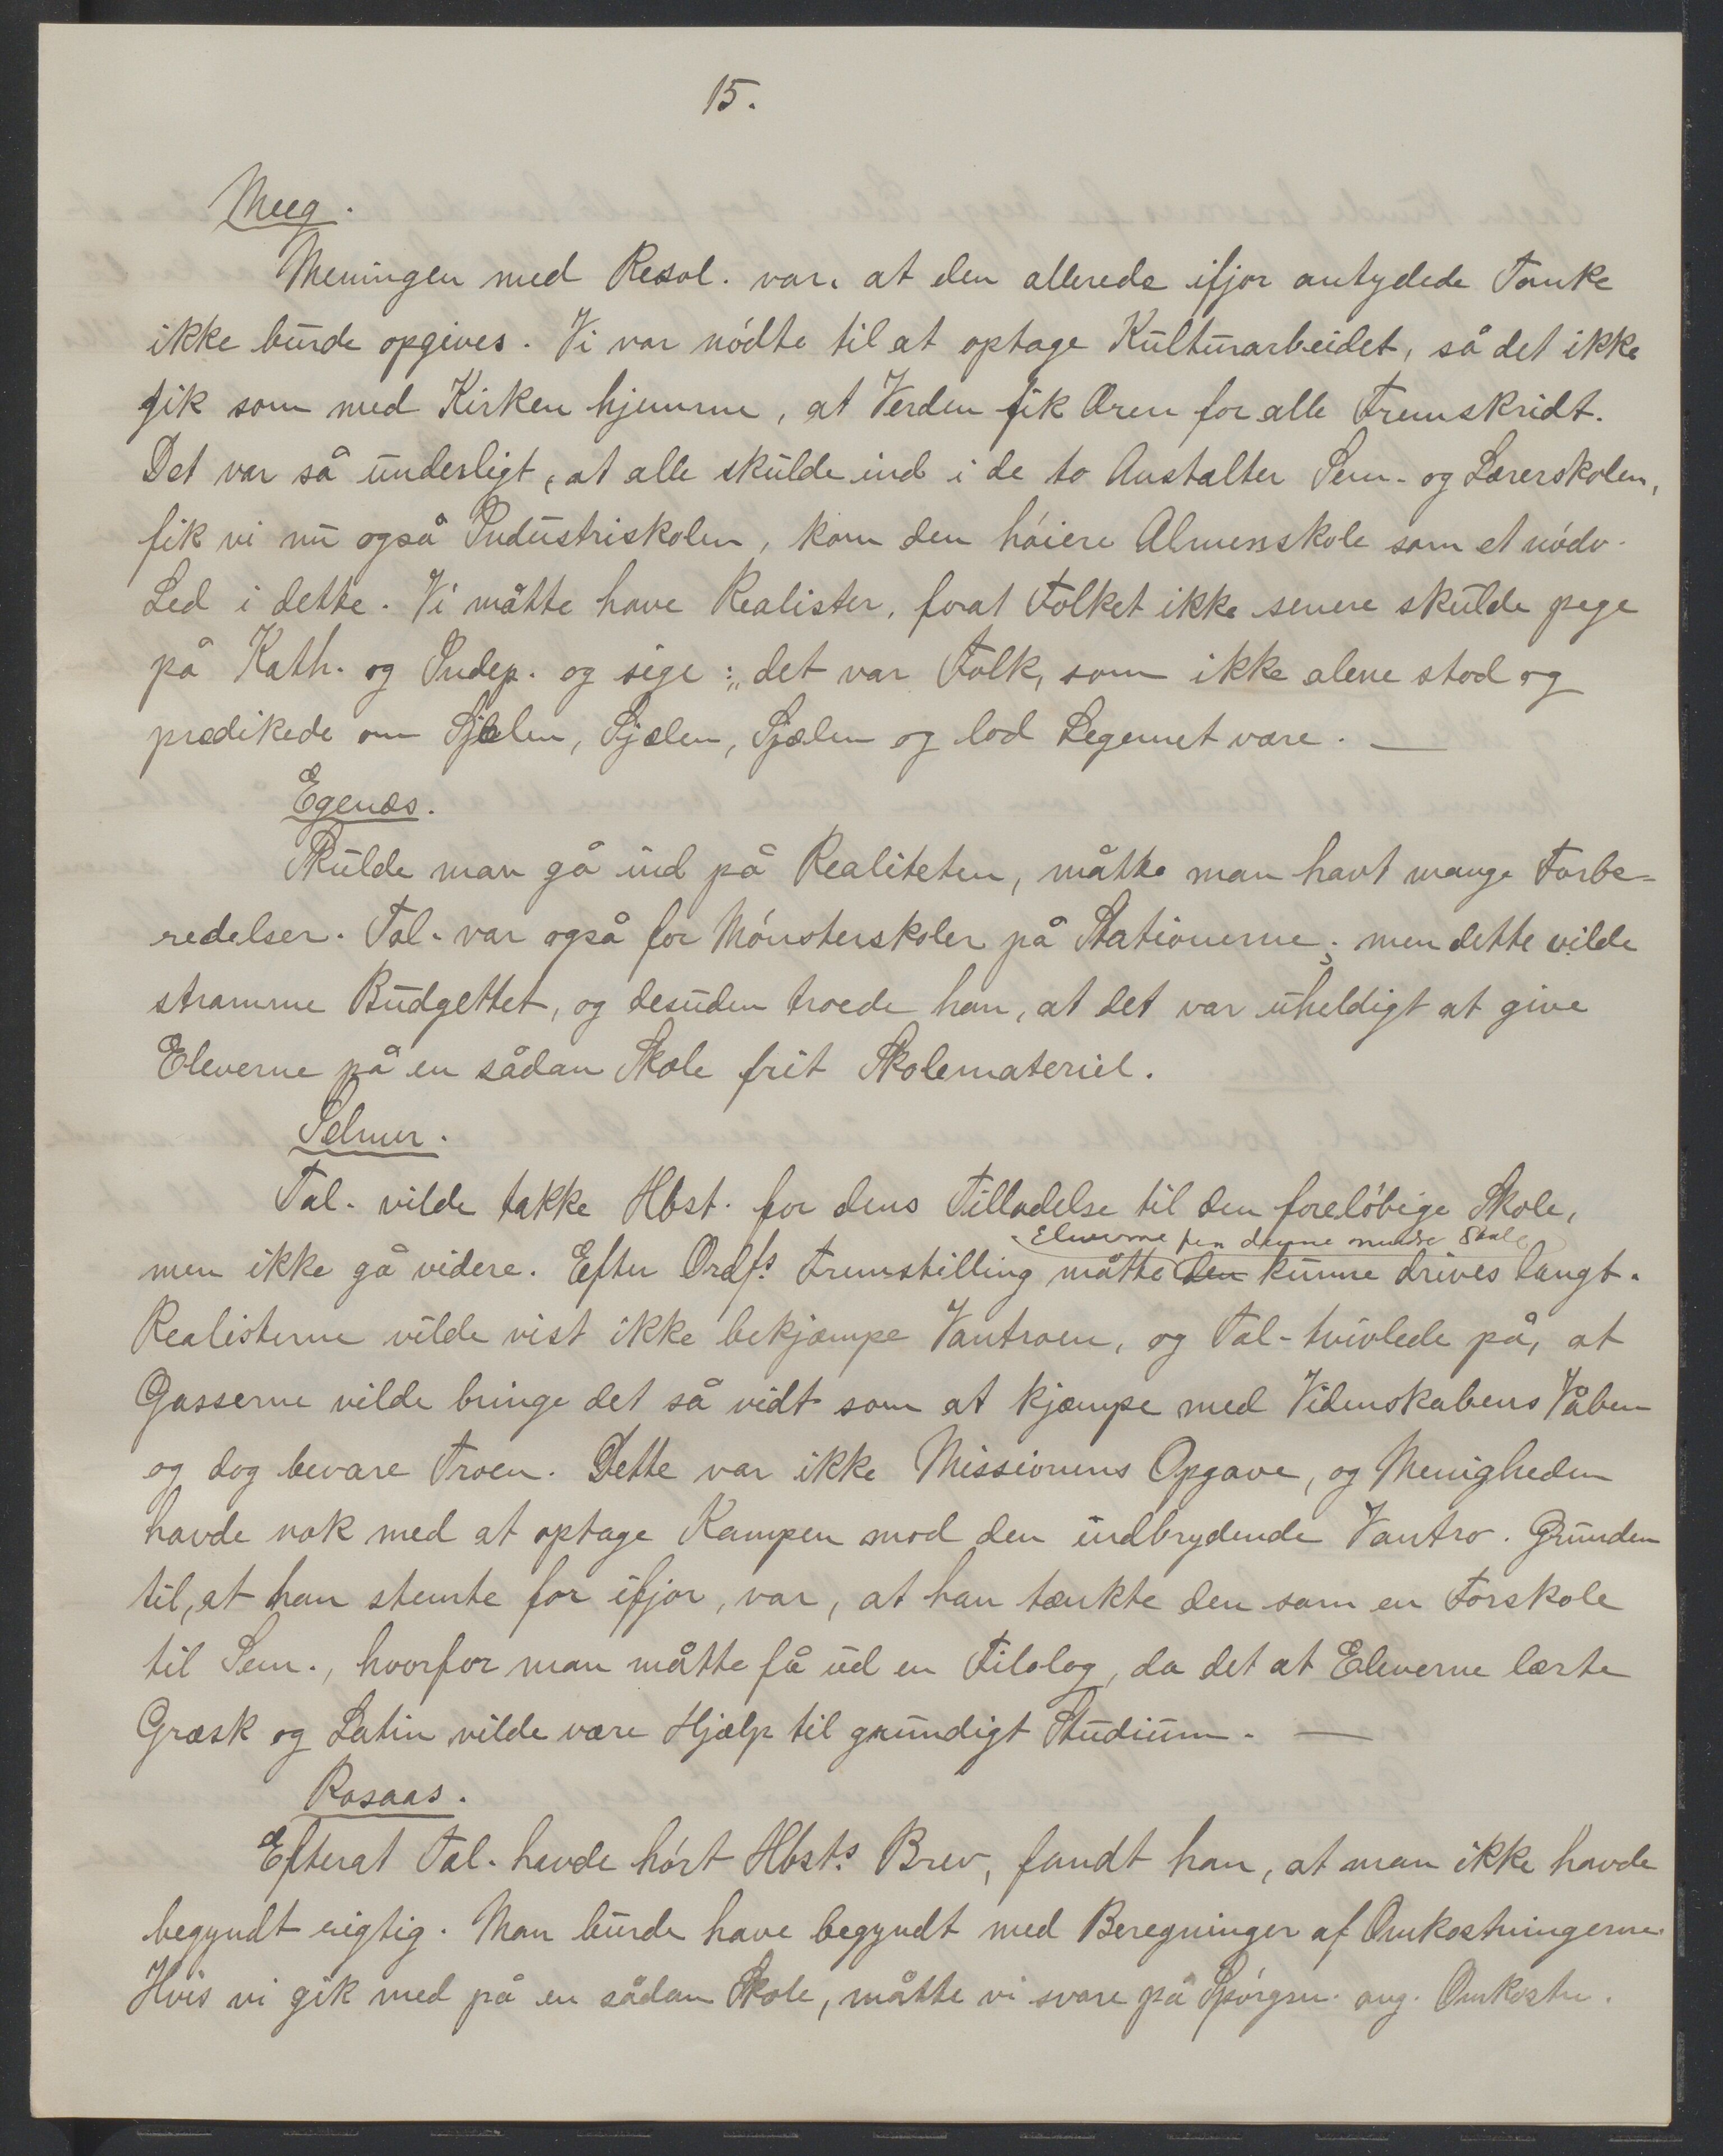 15.
Meeg.
Meningen med Resol. var, at den allerede ifjor antydede Tanke
ikke burde opgives. Vi var nödte til at optage Kulturarbeidet, så det ikke
gik som med Kirken hjemme, at Verden fik Æren for alle Fremskridt.
Det var så underligt, at alle skulde ind i de to Anstalter Sem- og Lærerskolen,
fik vi nu også Industriskolen, kom den höiere Almenskole som et nödv.
Led i dette. Vi måtte have Realister, forat Folket ikke senere skulde pege
på Kath. og Indep. og sige: „det var Folk, som ikke alene stod og
prædikede om Sjælen, Sjælen, Sjælen og lod Legemet være. —
Egenæs.
Skulde man gå ind på Realiteten, måtte man havt mange Forbe=
redelser. Tal. var også for Mönsterskoler på Stationerne; men dette vilde
stramme Budgettet, og desuden troede han, at det var uheldigt at give
Eleverne på en sådan Skole frit Skolemateriel.
Selmer.
Tal. vilde takke Hbst. for dens Tilladelse til den forelöbige Skole,
Eleverne fra denne mindre Skole
men ikke gå videre. Efter Ordfs. Fremstilling måtte den kunne drives langt.
Realisterne vilde vist ikke bekjæmpe Vantroen, og Tal- tvivlede på, at
Gasserne vilde bringe det så vidt som at kjæmpe med Videnskabens Våben
og dog bevare Troen. Dette var ikke Missionens Opgave, og Menigheden
havde nok med at optage Kampen mod den indbrydende Vantro. Grunden
til, at han stemte for ifjor, var, at han tænkte den som en Forskole
til Sem., hvorfor man måtte få ud en Filolog, da det at Eleverne lærte
Græsk og Latin vilde være Hjælp til grundigt Studium. —
Rosaas.
Efterat Tal. havde hört Hbst.s Brev, fandt han, at man ikke havde
begyndt rigtig. Man burde have begyndt med Beregninger af Omkostningerne.
Hvis vi gik med på en sådan Skole, måtte vi svare på Spörgsm. ang. Omkostn.